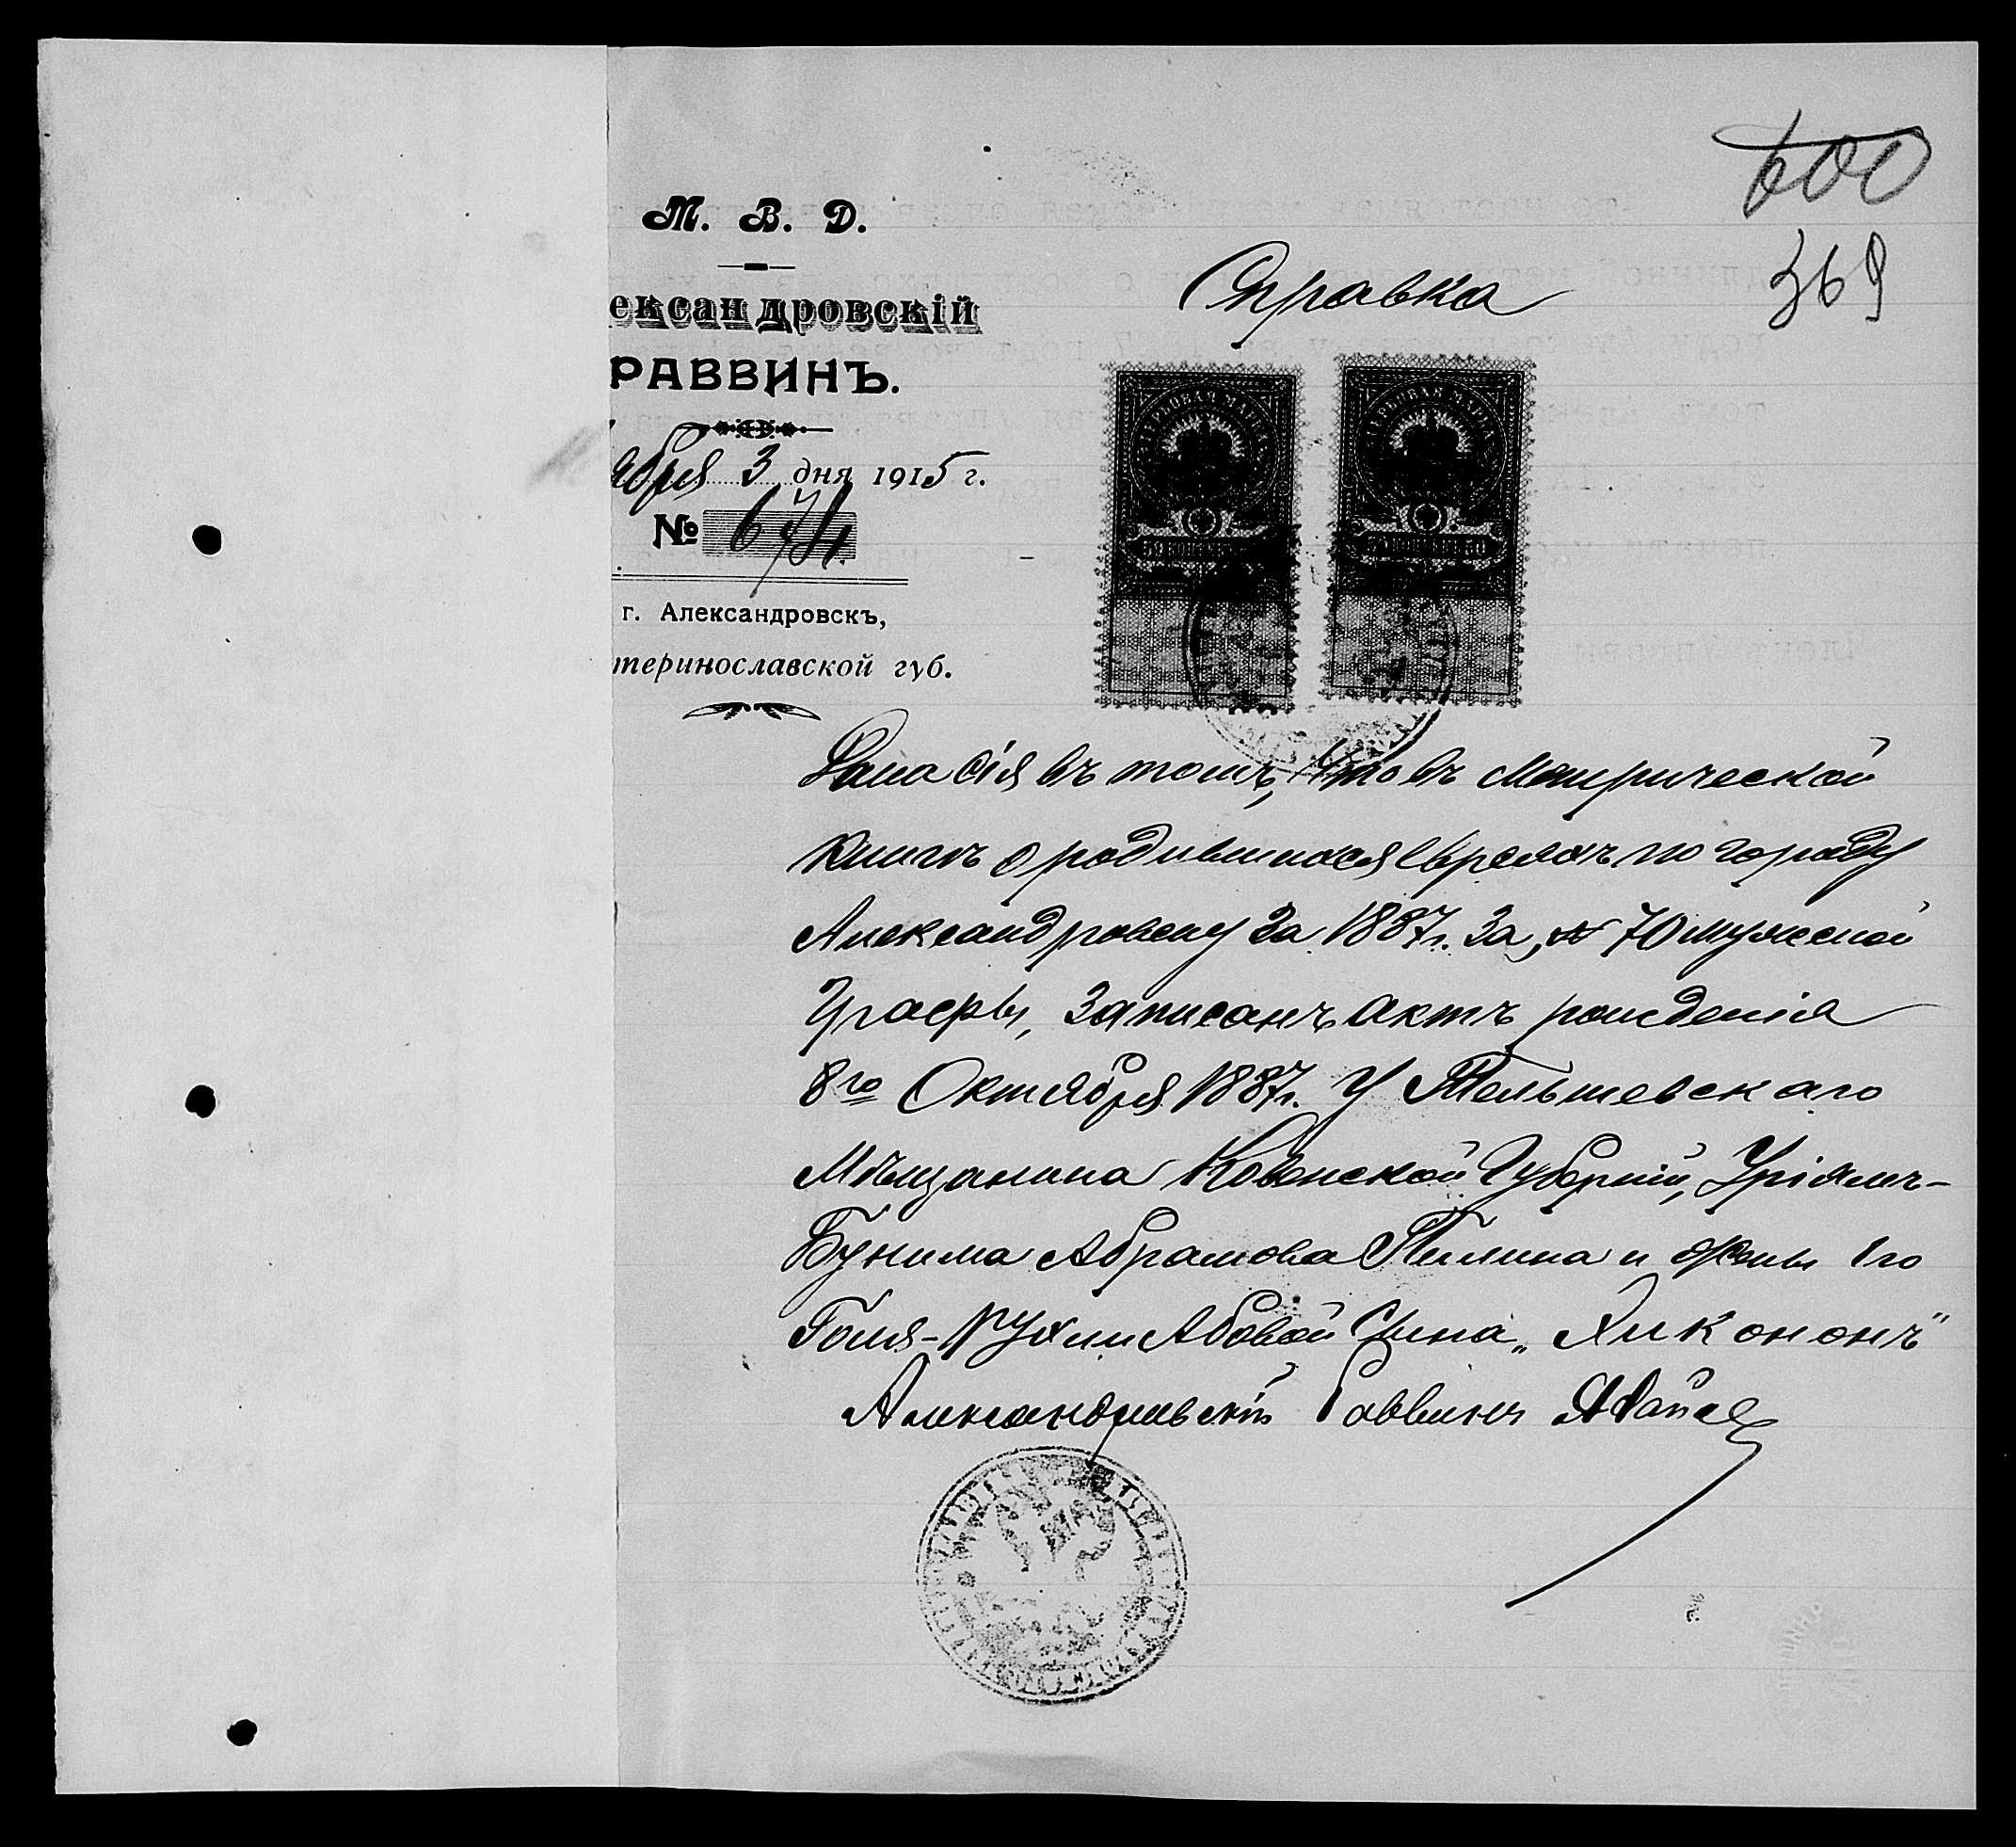 600
369
М. В. Д.
ександровскій
РАВВИНЪ.
ября 3 дня 1915 г.
№ 674.
г. Александровскъ,
теринославской губ.
Справка
ГЕРБОВАЯ МАРКА
ГЕРБОВАЯ МАРКА
50
Дана сія въ томъ, что въ метрической
книгѣ о родившихся евреяхъ по городу
Александровску за 1887 г. за № 70 мужской
графы, записанъ актъ рожденія
8го Октября 1887 г. у Тельшевскаго
Мѣщанина Ковенской Губерніи, Уріямъ-
Бунима Абрамова Пилина и жены его
Голя-Рухли Абовой Сына „Янкононъ"
Александровскій Раввинъ